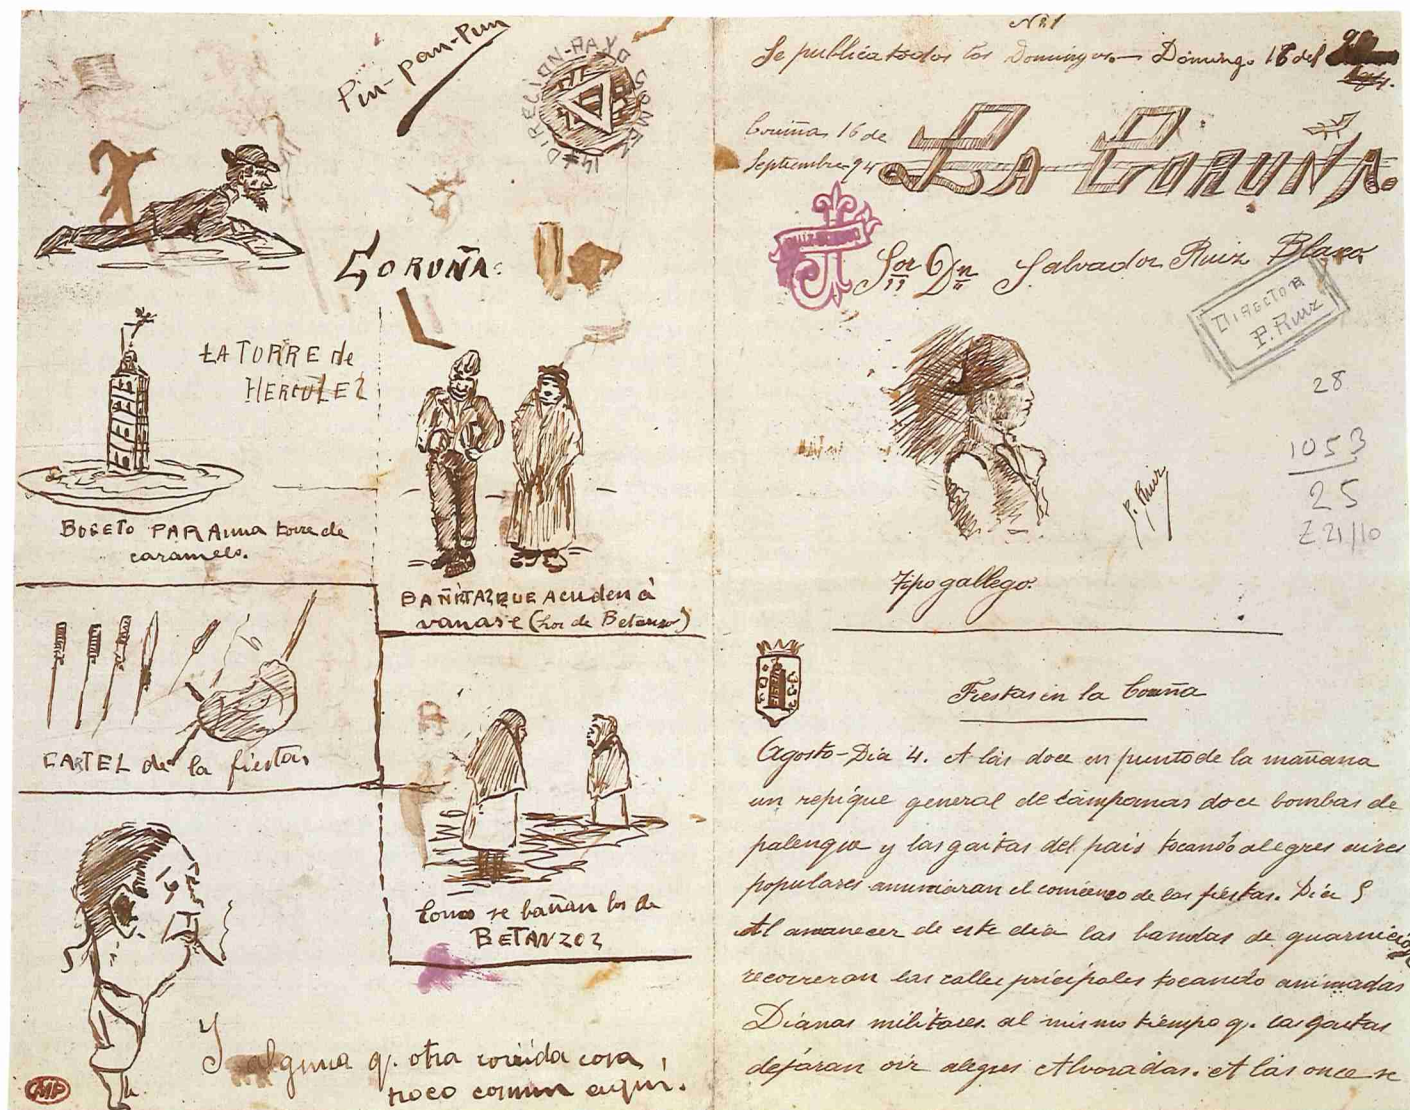 Pin-pan-Pun
DIRECION-PAYO GOMEZ 14
CORUÑA
LA TORRE de
HERCULEZ
BOSETO PARA una torre de
caramelo.
BAÑISTAS QUE Acuden á
(Los de Betanzo)
CARTEL de la fiestas
Como se bañan los de
BETANZOZ
Y alguna q. otra corrida cosa
poco comun aquí.
CMP
Nº 1
Se publica todos los Domingos.— Domingo 16 del
Coruña 16 de
Septiembre 94
LA CORUÑA.
Sor Dn Salvador Ruiz Blasco
DIRECTOR
P. Ruiz
28
1053
25
Z 21/10
P. Ruiz
Tipo gallego.
Fiestas en la Coruña
Agosto-Dia 4. A las doce en punto de la mañana
un repique general de campanas doce bombas de
palenque y las gaitas del pais tocando alegres aires
populares anunciaran el comienzo de las fiestas. Dia 5
Al amanecer de este dia las bandas de guarnición
recorreran las calles pricipales tocando animadas
Dianas militares. al mismo tiempo q. las gaitas
dejaran oir alegres Alvoradas. A las once se